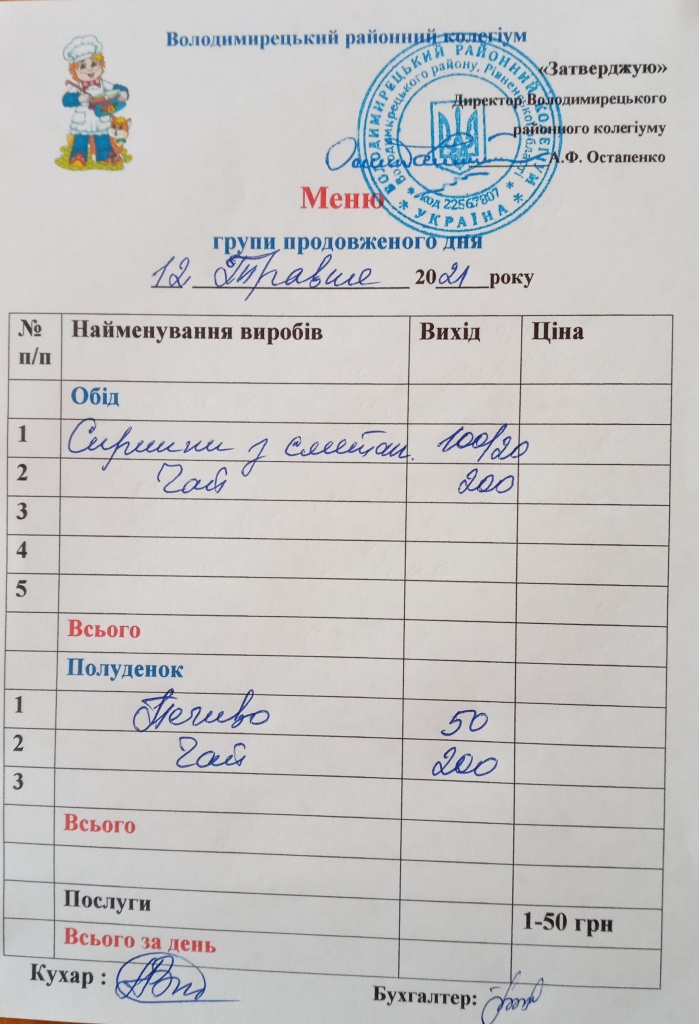 Володимирецький районний колегіум
«Затверджую»
Директор Володимирецького
районного колегіуму
А.Ф. Остапенко
ВОЛОДИМИРЕЦЬКИЙ РАЙОННИЙ КОЛЕГІУМ
Володимирецького району, Рівненської області
* код 22567807 *
* УКРАЇНА *
Меню
групи продовженого дня
12 Травня 2021 року
№ п/п Найменування виробів Вихід Ціна
Обід
1 Сирники з сметан. 100/20
2 Чай 200
3
4
5
Всього
Полуденок
1 Печиво 50
2 Чай 200
3
Всього
Послуги 1-50 грн
Всього за день
Кухар :
Бухгалтер: